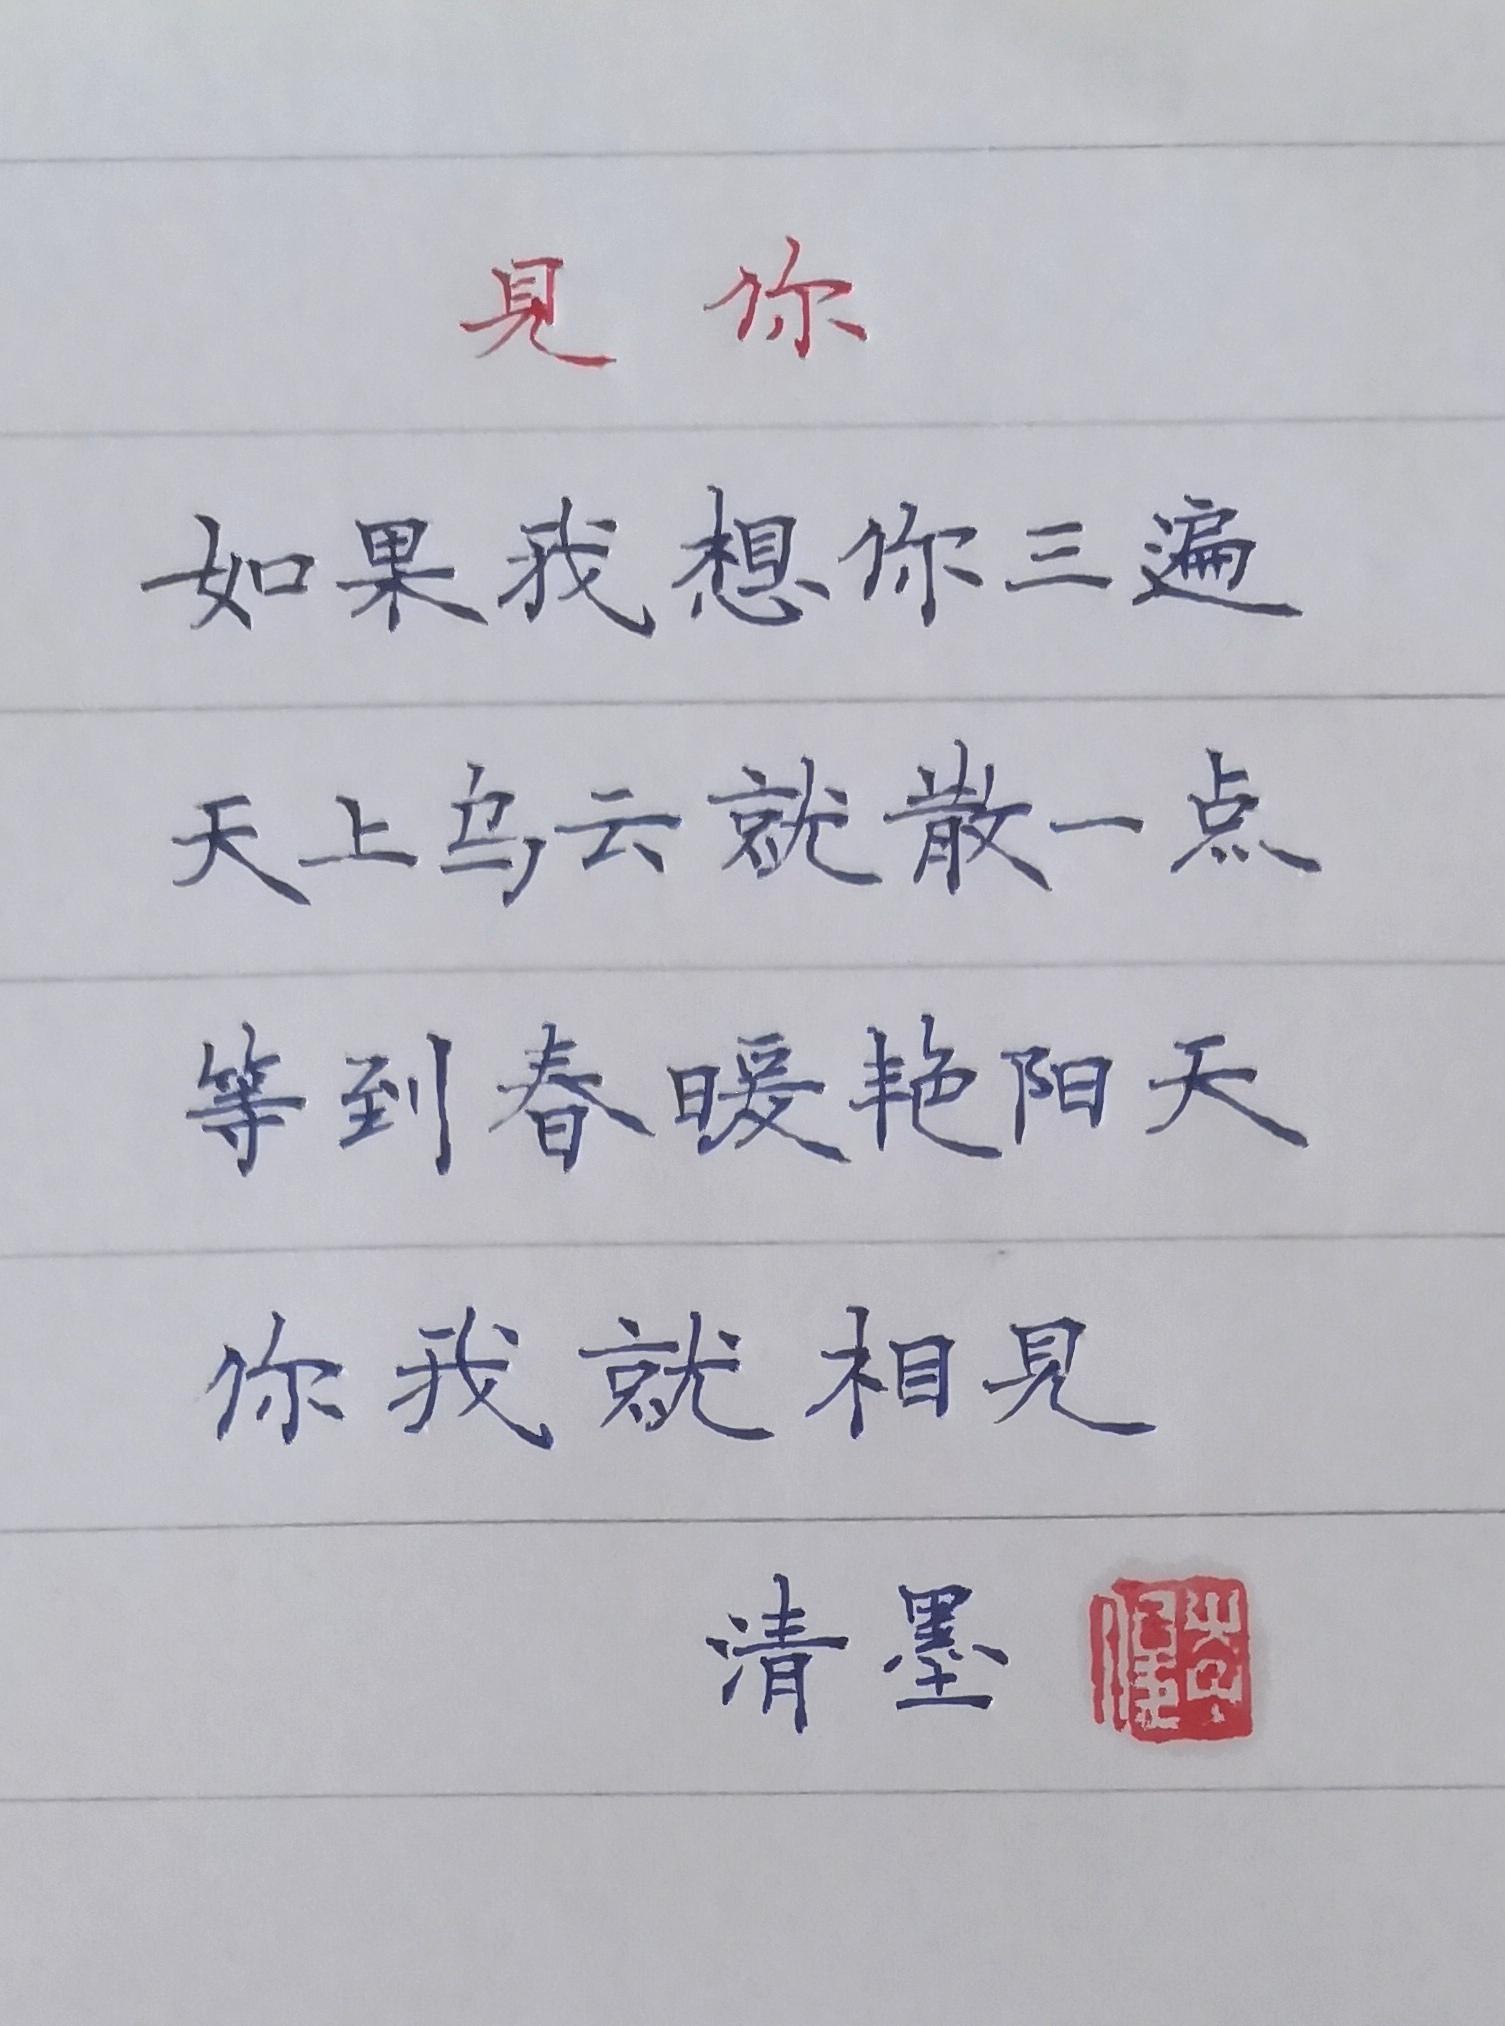 見 你
如果我想你三遍
天上乌云就散一点
等到春暖艳阳天
你我就相見
清墨